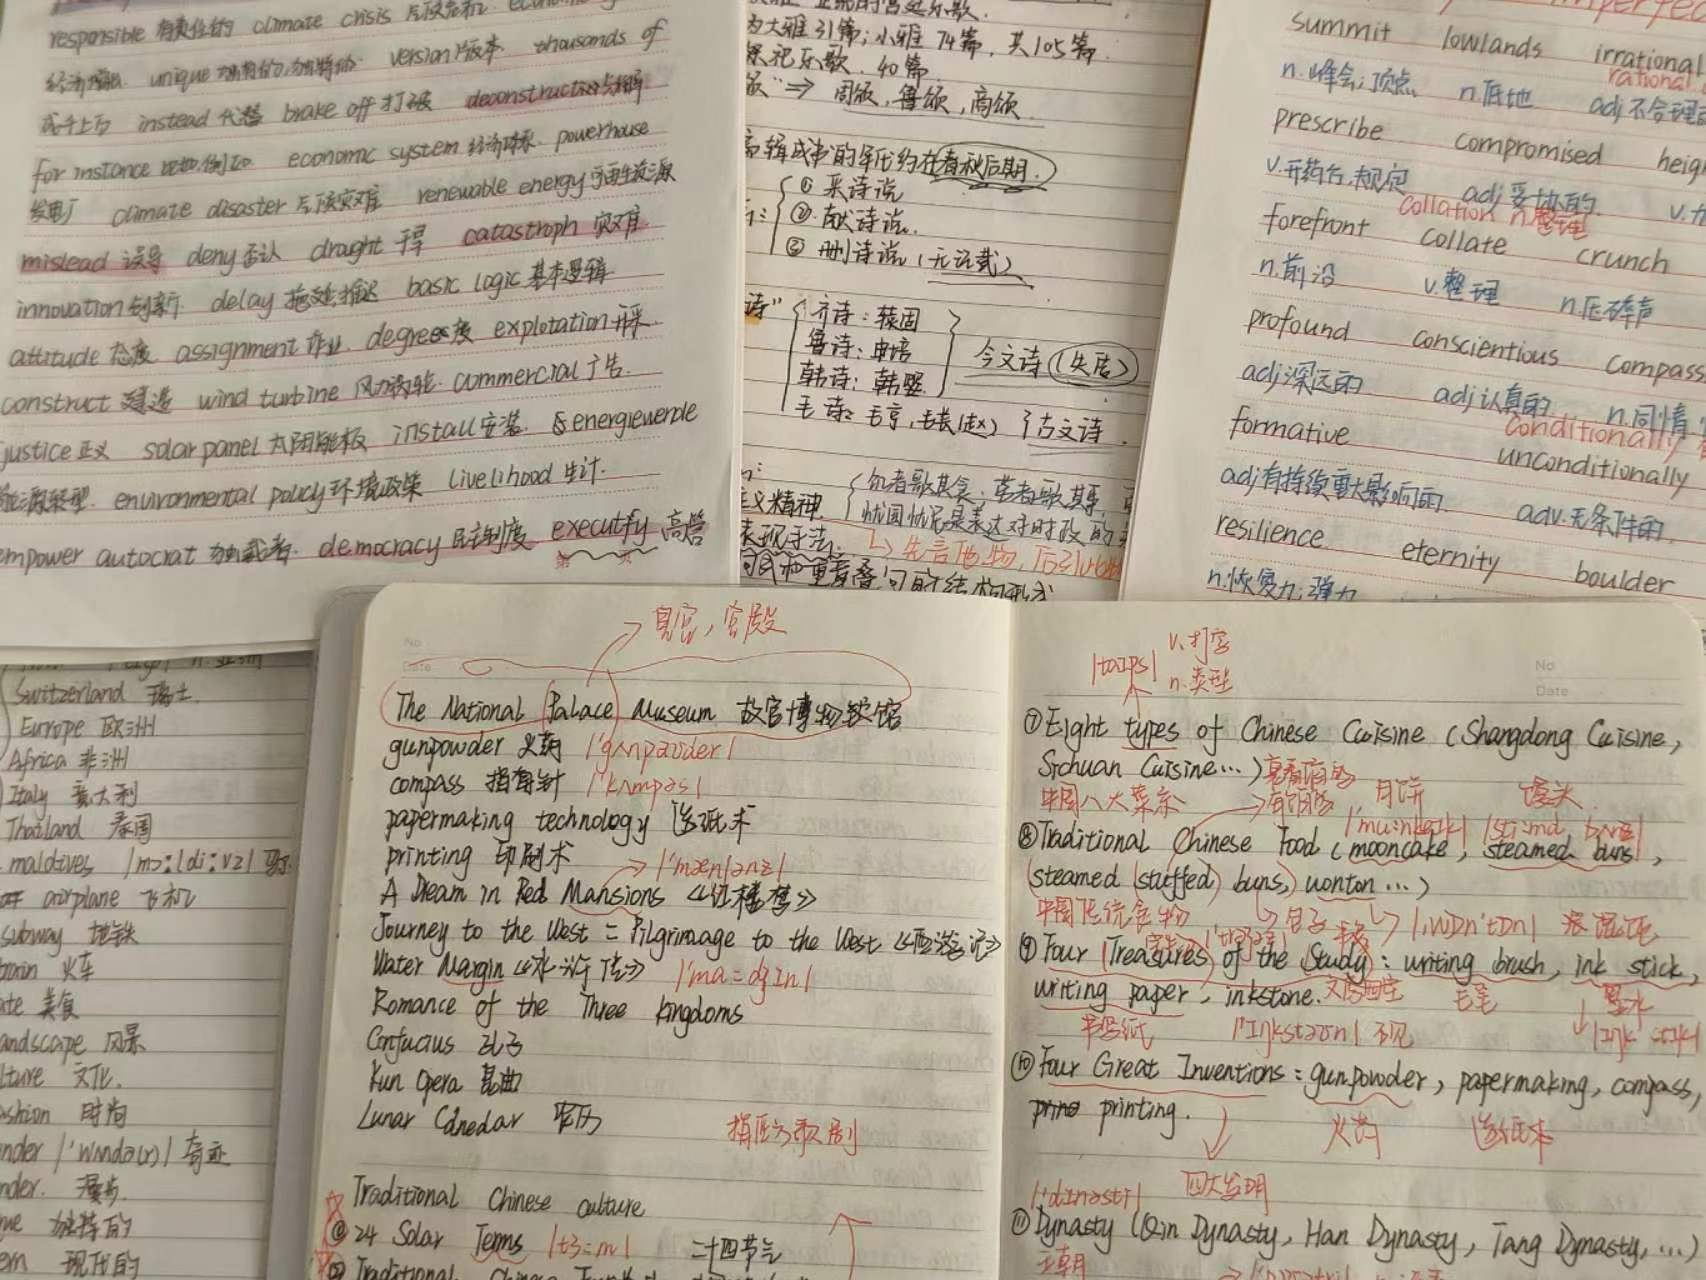 responsible 有责任的 climate crisis 气候危机
unique 独有的,独特的 version 版本 thousands of
成千上万 instead 代替 brake off 打破 deconstruction
for instance 比如,例如 economic system 经济体系 powerhouse
发电厂 climate disaster 气候灾难 renewable energy 可再生能源
mislead 误导 deny 否认 draught 干旱 catastroph 灾难
innovation 创新 delay 拖延,推迟 basic logic 基本逻辑
attitude 态度 assignment 作业 degrees 度 explotation 开采
construct 建造 wind turbine 风力涡轮 commercial 广告
justice 正义 solar panel 太阳能板 install 安装 energiewende
能源转型 environmental policy 环境政策 livelihood 生计
empower autocrat 独裁者 democracy 民主制度 executfy 高管
为大雅31篇;小雅74篇,共105篇
祭祀乐歌,40篇
颂"⇒周颂,鲁颂,商颂
编辑成书的年代约在春秋后期.
①采诗说
②献诗说.
③删诗说(无记载)
诗"
齐诗:辕固
鲁诗:申培
韩诗:韩婴
今文诗(失传)
毛诗:毛亨,毛苌(赵) 古文诗
饥者歌其食;劳者歌其事,
义精神
忧国忧民是表达对时政的
表现手法
先言他物,
summit lowlands irrational
rational
n.峰会;顶点 n.低地 adj不合理的
prescribe compromised
v.开药方,规定 adj妥协的
collation n.整理
forefront collate crunch
n.前沿 v.整理 n.压碎声
profound conscientious
adj深远的 adj认真的 n.同情
conditionally
formative unconditionally
adj有持续重大影响的 adv.无条件的
resilience eternity boulder
n.恢复力;弹力
Switzerland 瑞士
Europe 欧洲
Africa 非洲
Italy 意大利
Thailand 泰国
maldives |mɔ:ldi:vz|
airplane 飞机
subway 地铁
火车
美食
风景
文化.
时尚
|'wʌndə(r)| 奇迹
独特的
现代的
No
Date
皇宫,宫殿
The National Palace Museum 故宫博物馆
gunpowder 火药 |'gʌnpaʊdər|
compass 指南针 |'kʌmpəs|
papermaking technology 造纸术
printing 印刷术
|'mænʃənz|
A Dream in Red Mansions 《红楼梦》
Journey to the West = Pilgrimage to the West 《西游记》
Water Margin 《水浒传》 |'ma:dʒɪn|
Romance of the Three kingdoms
Confucius 孔子
Kun Opera 昆曲
Lunar Canedar 农历
Traditional Chinese culture
24 Solar Terms |tɜ:m| 二十四节气
No
Date
|taɪps| v.打字
n.类型
⑦Eight types of Chinese Cuisine (Shangdong Cuisine,
Sichuan Cuisine...)
中国八大菜系 有馅的 月饼 馒头
⑧Traditional Chinese Food (mooncake, steamed buns,
(steamed (stuffed) buns,) wonton...)
中国传统食物 包子 |,wɒn'tɒn|
⑨Four Treasures of the Study: writing brush, ink stick,
writing paper, inkstone. 文房四宝 毛笔 墨水
书写纸 |'ɪŋkstəʊn| 砚
⑩Four Great Inventions: gunpowder, papermaking, compass,
printing.
火药 造纸术
四大发明
|'dɪnəsti|
⑪Dynasty (Qin Dynasty, Han Dynasty, Tang Dynasty,...)
王朝